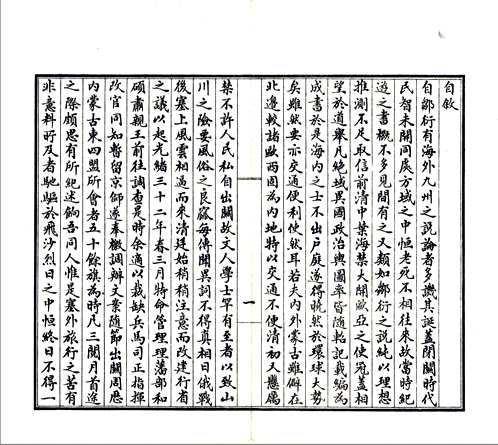 自敘
自鄒衍有海外九州之説論者多譏其誕蓋閉關時代
民智未開同處方域之中恒老死不相往來故當時紀
遊之書概不多見間有之又類如鄒衍之説純以理想
推測不足取信前清中葉海禁大開歐亞之使冠蓋相
望於道舉凡絕域異國政治輿圖率皆隨軺記載編為
成書於是海内之士不出戶庭遂得曉然於環球大勢
矣雖然要亦交通便利使然耳若夫内外蒙古雖僻在
北邊較諸歐西固為内地特以交通不便清初又懸厲
一
禁不許人民私自出關故文人學士罕有至者以致山
川之險要風俗之良窳每傳聞異詞不得真相日俄戰
後塞上風雲相逼而來清廷始稍稍注意而改建行省
之議以起光緒三十二年春三月特命管理理藩部和
碩肅親王前往調查是時余適以裁缺兵馬司正指揮
改官同知暫留京師遂奉檄調辦文案隨節出關周歷
内蒙古東四盟所會者五十餘旗為時凡三閱月首途
之際頗思有所紀述餉吾同人惟是塞外旅行之苦有
非意料所及者馳驅於飛沙烈日之中恒終日不得一